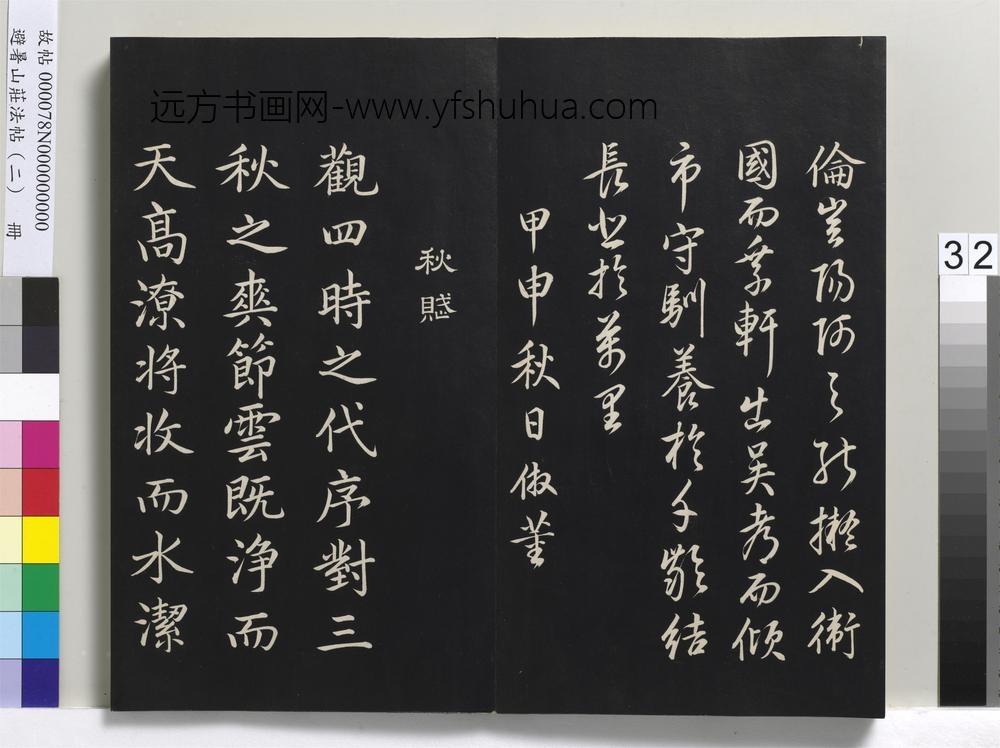 故帖 000078N000000000
避暑山莊法帖(二) 冊
远方书画网-www.yfshuhua.com
32
倫豈陽阿之能擬入衛
國而乘軒出吳都而傾
市守馴養於千齡結
長悲於萬里
甲申秋日倣董
秋賦
觀四時之代序對三
秋之爽節雲既淨而
天高潦將收而水潔